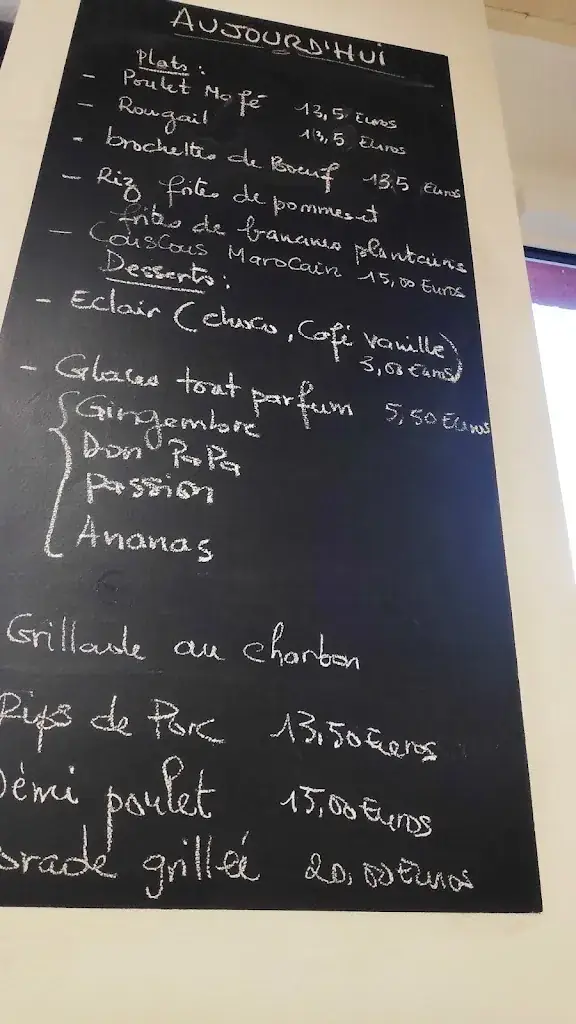 AUJOURD'HUI
Plats :
- Poulet Mafé 13,5 Euros
- Rougail 13,5 Euros
- brochettes de Boeuf 13,5 Euros
- Riz frites de pommes et
frites de bananes plantains
- Couscous Marocain 15,00 Euros
Desserts :
- Eclair (choco, Café vanille)
3,00 Euros
- Glaces tout parfum 5,50 Euros
Gingembre
Don PaPa
Passion
Ananas
Grillade au charbon
Rips de Porc 13,50 Euros
Démi poulet 15,00 Euros
Dorade grillée 20,00 Euros